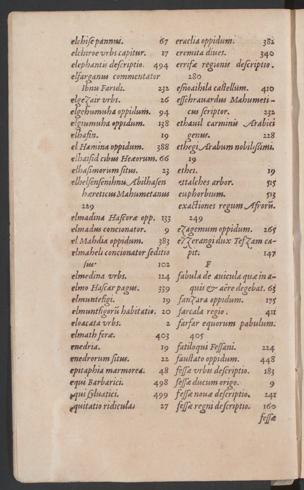 elchise pannus. 67
elchiroe vrbs capitur. 17
elephantis descriptio. 494
elfarganus commentator
Ibnu Faridi. 232
elgezair vrbs. 26
elgehumuha oppidum. 94
elgiumuha oppidum. 138
elhasin. 19
el Hamma oppidum. 388
elhaisid cibus Heærorum. 66
elhasimorum situs. 23
elhesensenihnu Abilhasen
hæreticus Mahumetanus
229
elmadina Hascoræ opp. 133
elmadus concionator. 9
el Mahdia oppidum. 383
elmaheli concionator seditio
sus. 102
elmedina vrbs. 124
elmo Hascar pagus. 339
elmuntefigi. 19
elmuntfigorũ habitatio. 20
eloacata vrbs. 2
elmath feræ. 403
enedria. 19
enedrorum situs. 22
epitaphia marmorea. 48
equi Barbarici. 498
equi siluatici. 499
equitatio ridicula. 27
eraclia oppidum. 382
eremita diues. 340
errifæ regionis descriptio.
280
esnoaihila castellum. 410
esschrauardus Mahumeti-
cus scriptor. 232
ethauil carminis Arabici
genus. 228
ethegi Arabum nobilissimi.
19
ethei. 19
ettalches arbor. 515
euphorbium. 513
exactiones regum Afrorũ.
249
ezagemum oppidum. 265
ezzerangi dux Tefzam ca-
pit. 147
F
fabula de auicula quæ in a-
quis & aëre degebat. 65
fanzara oppidum. 175
farcala regio. 411
farfar equorum pabulum.
405
fatiloqui Fessani. 224
faustato oppidum. 448
fessæ vrbis descriptio. 183
fessæ ducum origo. 9
fessæ nouæ descriptio. 241
fessæ regni descriptio. 160
fessæ